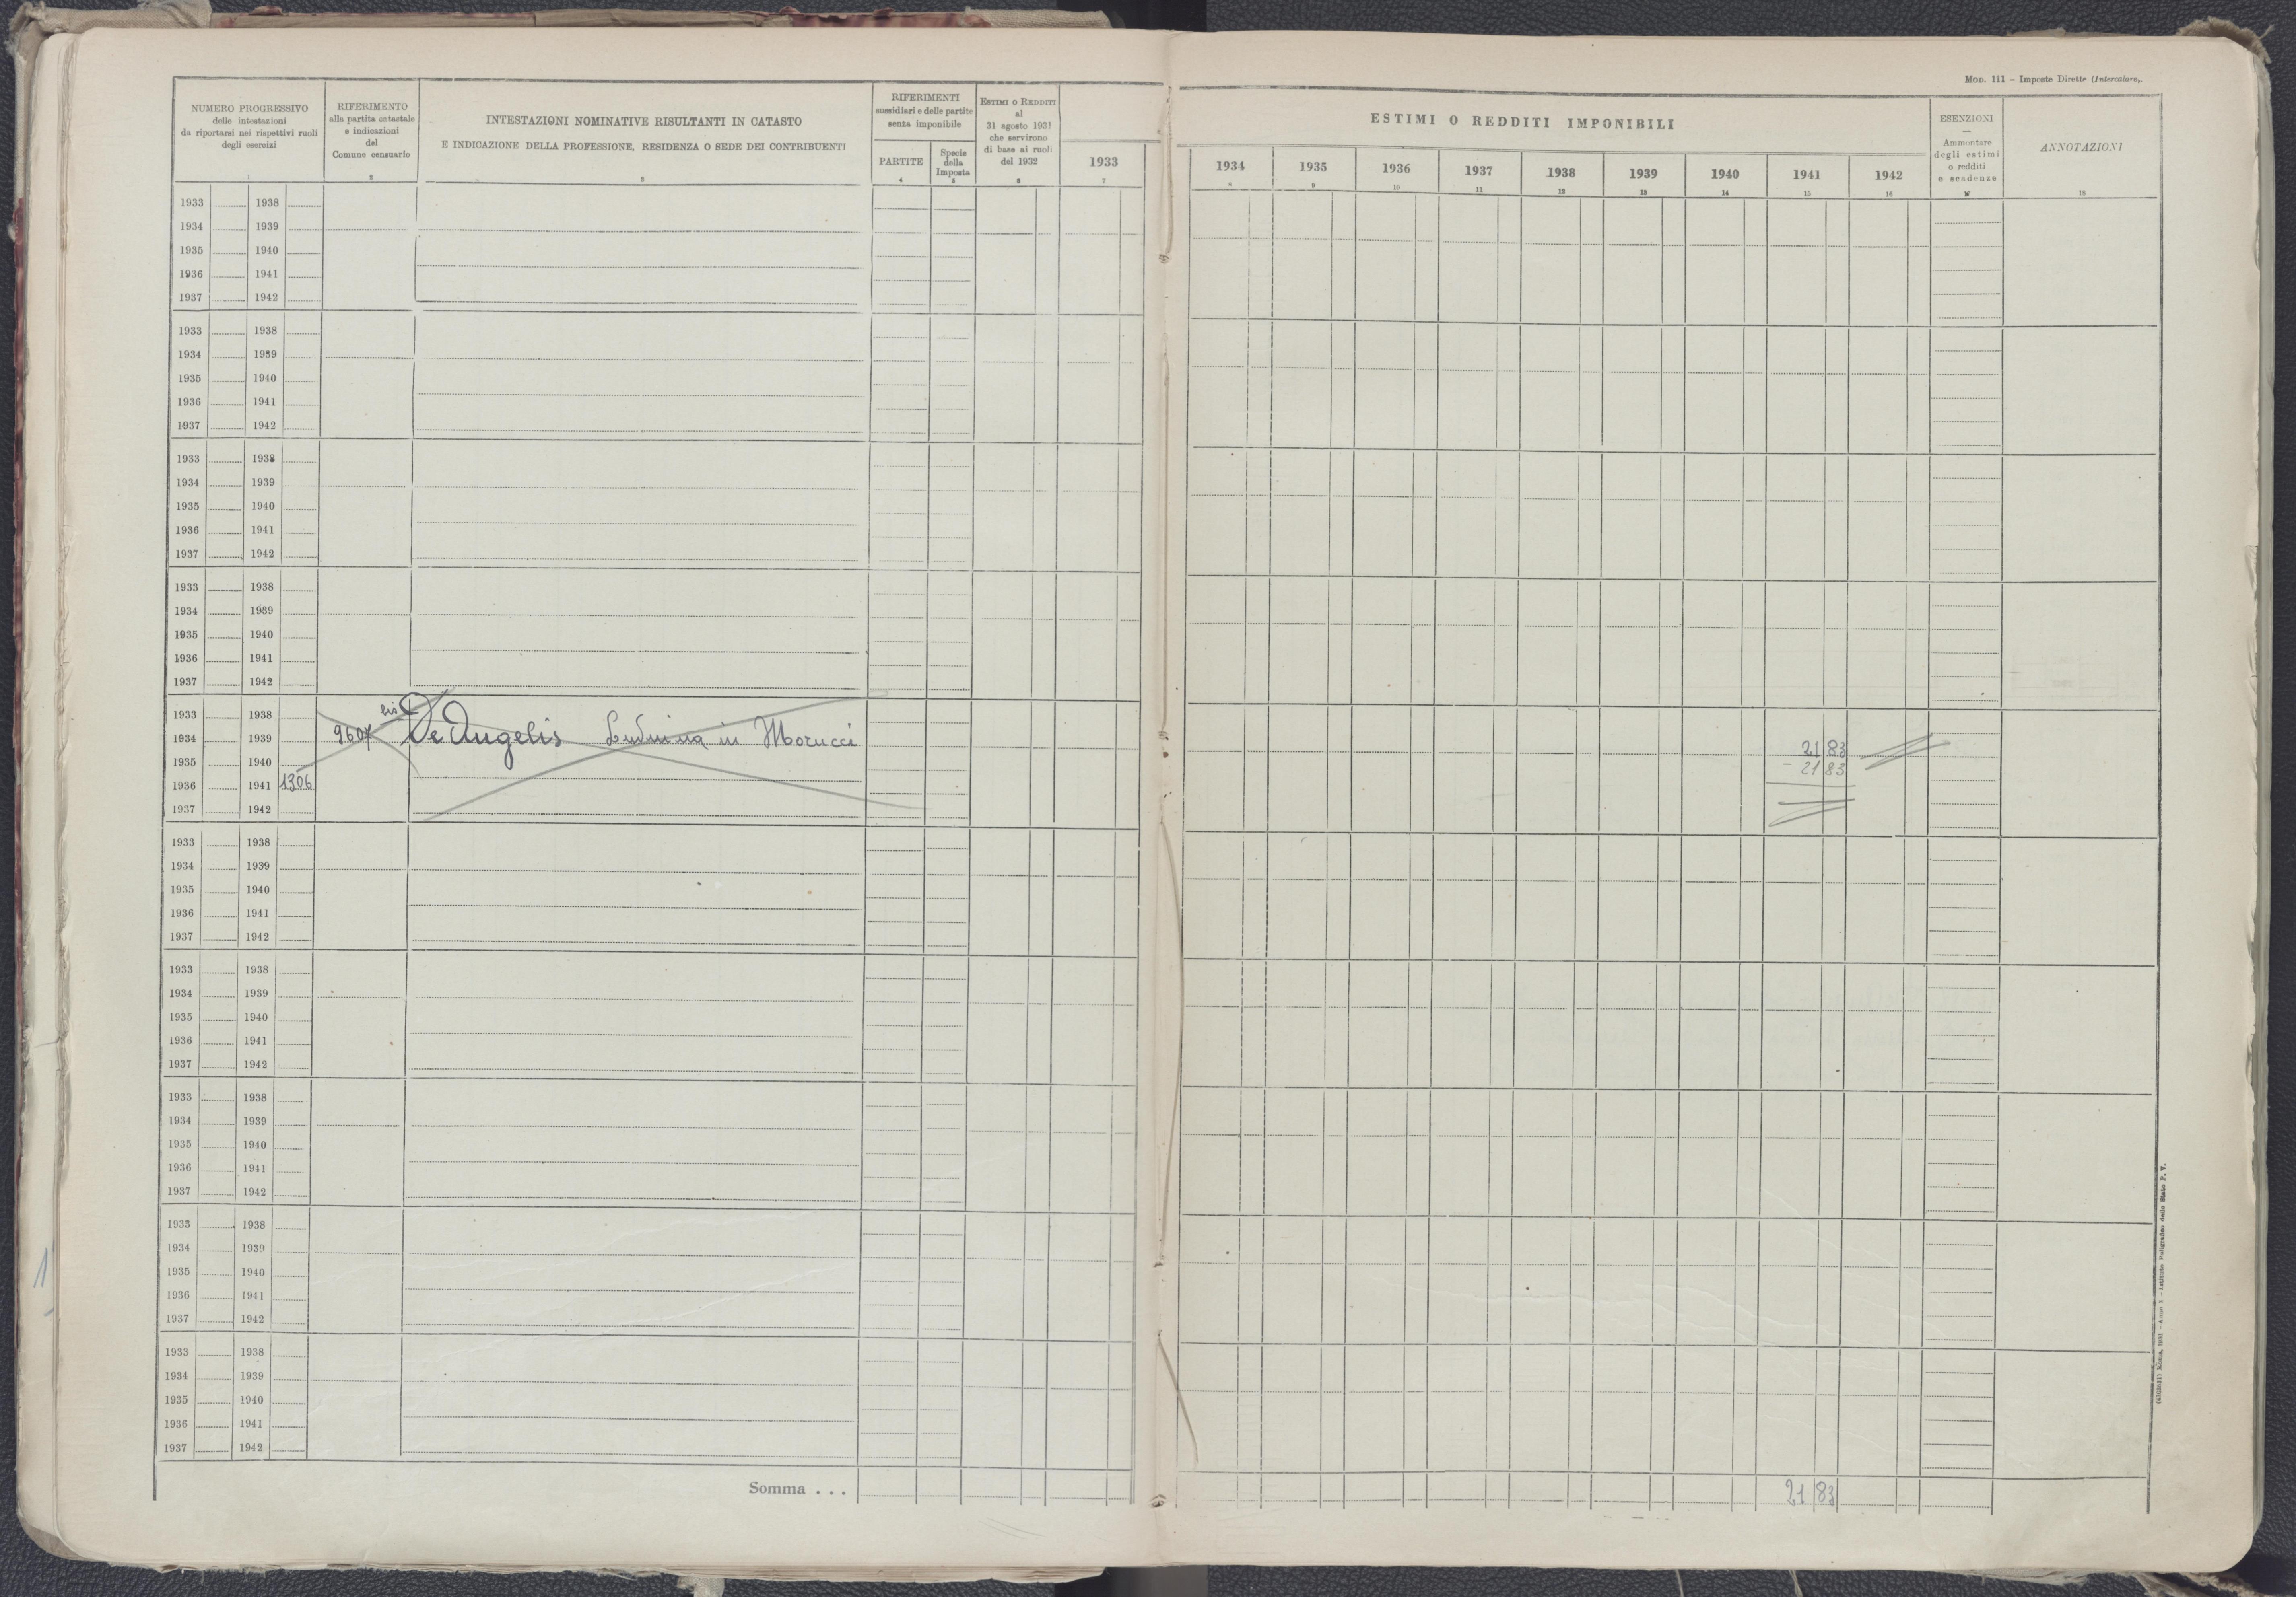 MOD. 111 – Imposte Dirette (Intercalare).
NUMERO PROGRESSIVO
delle intestazioni
da riportarsi nei rispettivi ruoli
degli esercizi
1
RIFERIMENTO
alla partita catastale
e indicazioni
del
Comune censuario
2
INTESTAZIONI NOMINATIVE RISULTANTI IN CATASTO
E INDICAZIONE DELLA PROFESSIONE, RESIDENZA O SEDE DEI CONTRIBUENTI
3
RIFERIMENTI
sussidiari e delle partite
senza imponibile
PARTITE
4
Specie
della
Imposta
5
ESTIMI O REDDITI
al
31 agosto 1931
che servirono
di base ai ruoli
del 1932
6
ESTIMI O REDDITI IMPONIBILI
1933 1934 1935 1936 1937 1938 1939 1940 1941 1942
7 8 9 10 11 12 13 14 15 16
ESENZIONI
—
Ammontare
degli estimi
o redditi
e scadenze
17
ANNOTAZIONI
18
1933 1938
1934 1939
1935 1940
1936 1941
1937 1942
1933 1938
1934 1939
1935 1940
1936 1941
1937 1942
1933 1938
1934 1939
1935 1940
1936 1941
1937 1942
1933 1938
1934 1939
1935 1940
1936 1941
1937 1942
1933 1938 bis
1934 1939 9607 De Angelis in Morucci 21 83
1935 1940 - 21 83
1936 1941 1306
1937 1942
1933 1938
1934 1939
1935 1940
1936 1941
1937 1942
1933 1938
1934 1939
1935 1940
1936 1941
1937 1942
1933 1938
1934 1939
1935 1940
1936 1941
1937 1942
1933 1938
1934 1939
1935 1940
1936 1941
1937 1942
1933 1938
1934 1939
1935 1940
1936 1941
1937 1942
Somma . . . 21 83
1
Roma, 1931 - Anno X - Istituto Poligrafico dello Stato P. V.